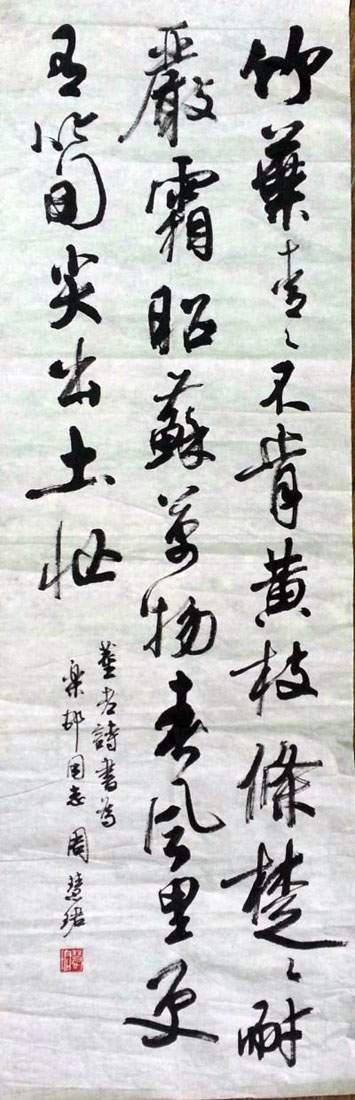 竹葉青〻不肯黄枝條楚〻耐
嚴霜昭蘇萬物春風里更
有筍尖出土忙
董老詩書為
樂邨同志 周慧珺